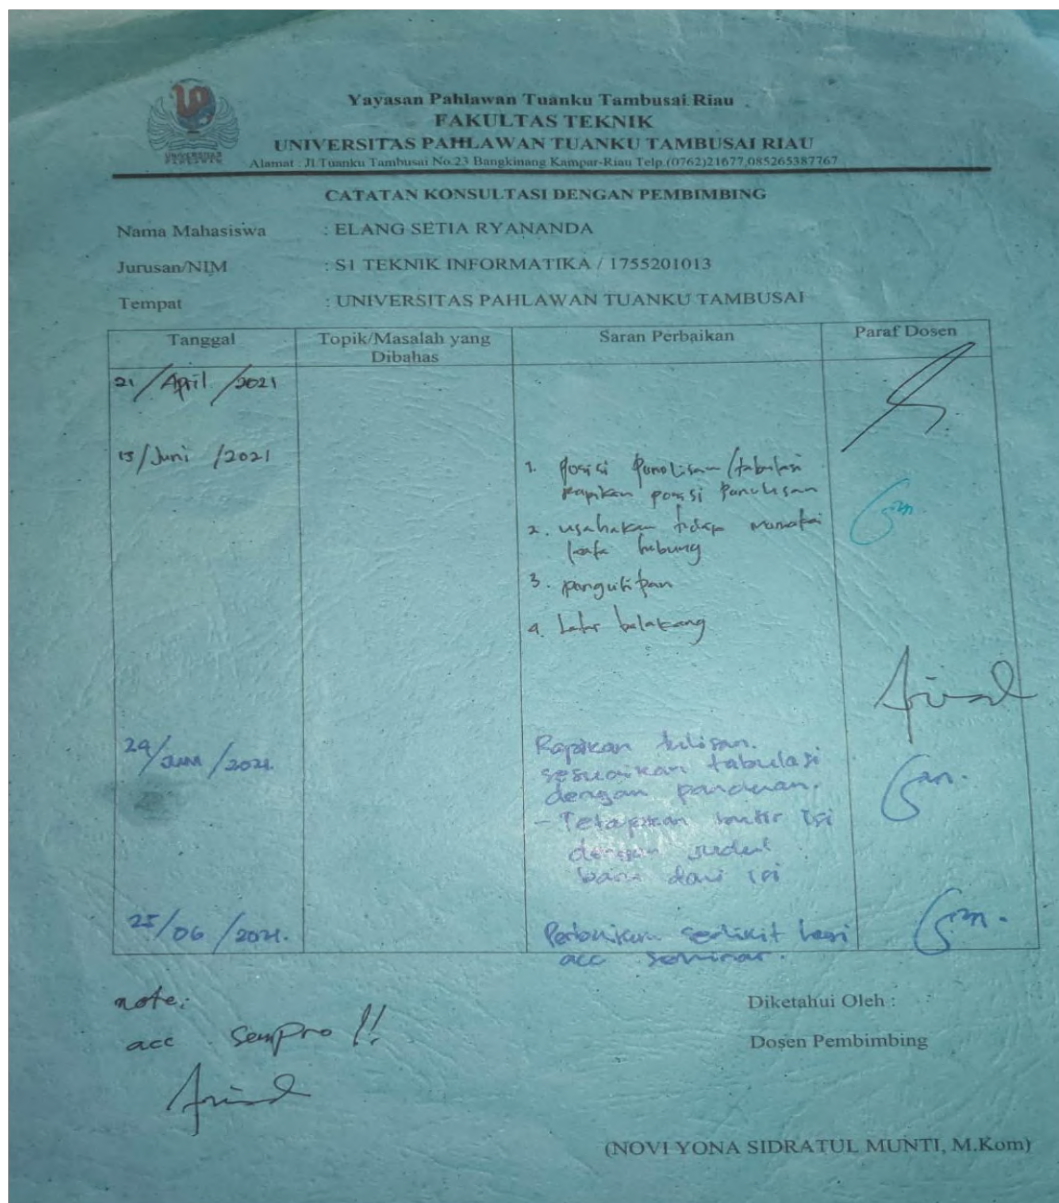 Yayasan Pahlawan Tuanku Tambusai Riau
FAKULTAS TEKNIK
UNIVERSITAS PAHLAWAN TUANKU TAMBUSAI RIAU
Alamat : Jl.Tuanku Tambusai No.23 Bangkinang Kampar-Riau Telp.(0762)21677,085265387767
CATATAN KONSULTASI DENGAN PEMBIMBING
Nama Mahasiswa : ELANG SETIA RYANANDA
Jurusan/NIM : S1 TEKNIK INFORMATIKA / 1755201013
Tempat : UNIVERSITAS PAHLAWAN TUANKU TAMBUSAI
Tanggal
Topik/Masalah yang
Dibahas
Saran Perbaikan
Paraf Dosen
21/April/2021
/Juni/2021
1. posisi penulisan/tabulasi
rapikan posisi penulisan
2. usahakan tidak memakai
kata hubung
3. pengutipan
4. Latar belakang
24/Juni/2021.
Rapikan tulisan.
sesuaikan tabulasi
dengan panduan.
- Tetapkan isi
dengan judul
dari isi
25/06/2021.
sedikit lagi
acc seminar.
note:
acc sempro !!
Diketahui Oleh :
Dosen Pembimbing
(NOVI YONA SIDRATUL MUNTI, M.Kom)